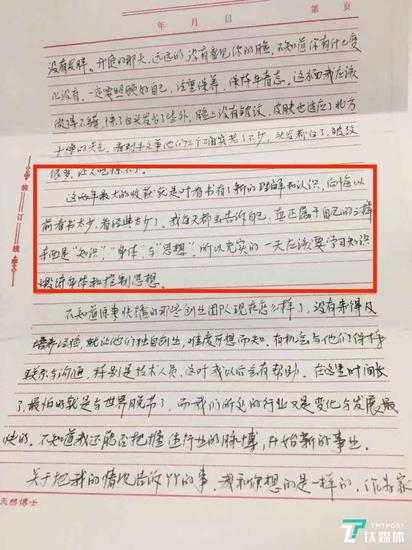 年 月 日 第 页
没有发胖。开庭的那天，远远的没有看见你的脸，不知道你有什么变
化没有。一定要照顾好自己，注意保养，保持年青态。这方面我应该
做得不错，除了白头发多了些外，脸上没有皱纹，皮肤也适应了北方
干燥的天气。看到牛文等他们2个确实老了不少，头发都白了，皱纹
很多，让人
这两年最大的收获就是对看书有了新的理解和认识，后悔以
前看书太少，看经典太少了。我每天都会告诉自己，真正属于自己的三样
东西是“知识”，“身体”，与“思想”，所以充实的一天应该要学习知识
锻炼身体和控制思想。
不知道原来快播的那些创业团队现在怎么样了，没有来得及
培养经验，就让他们独自创业，难度可想而知。有机会与他们保持
联系与沟通，特别是技术人员，这对我以后会有帮助。在这里时间长
了，最怕的就是与世界脱节了，而我们所处的行业又是变化与发展最
快的。不知道我还能否把握住行业的脉博，开始新的事业。
关于把我的情况告诉YY的事，我和你想的是一样的，作为家
装订线
天然博士
TMTPOST
钛媒体